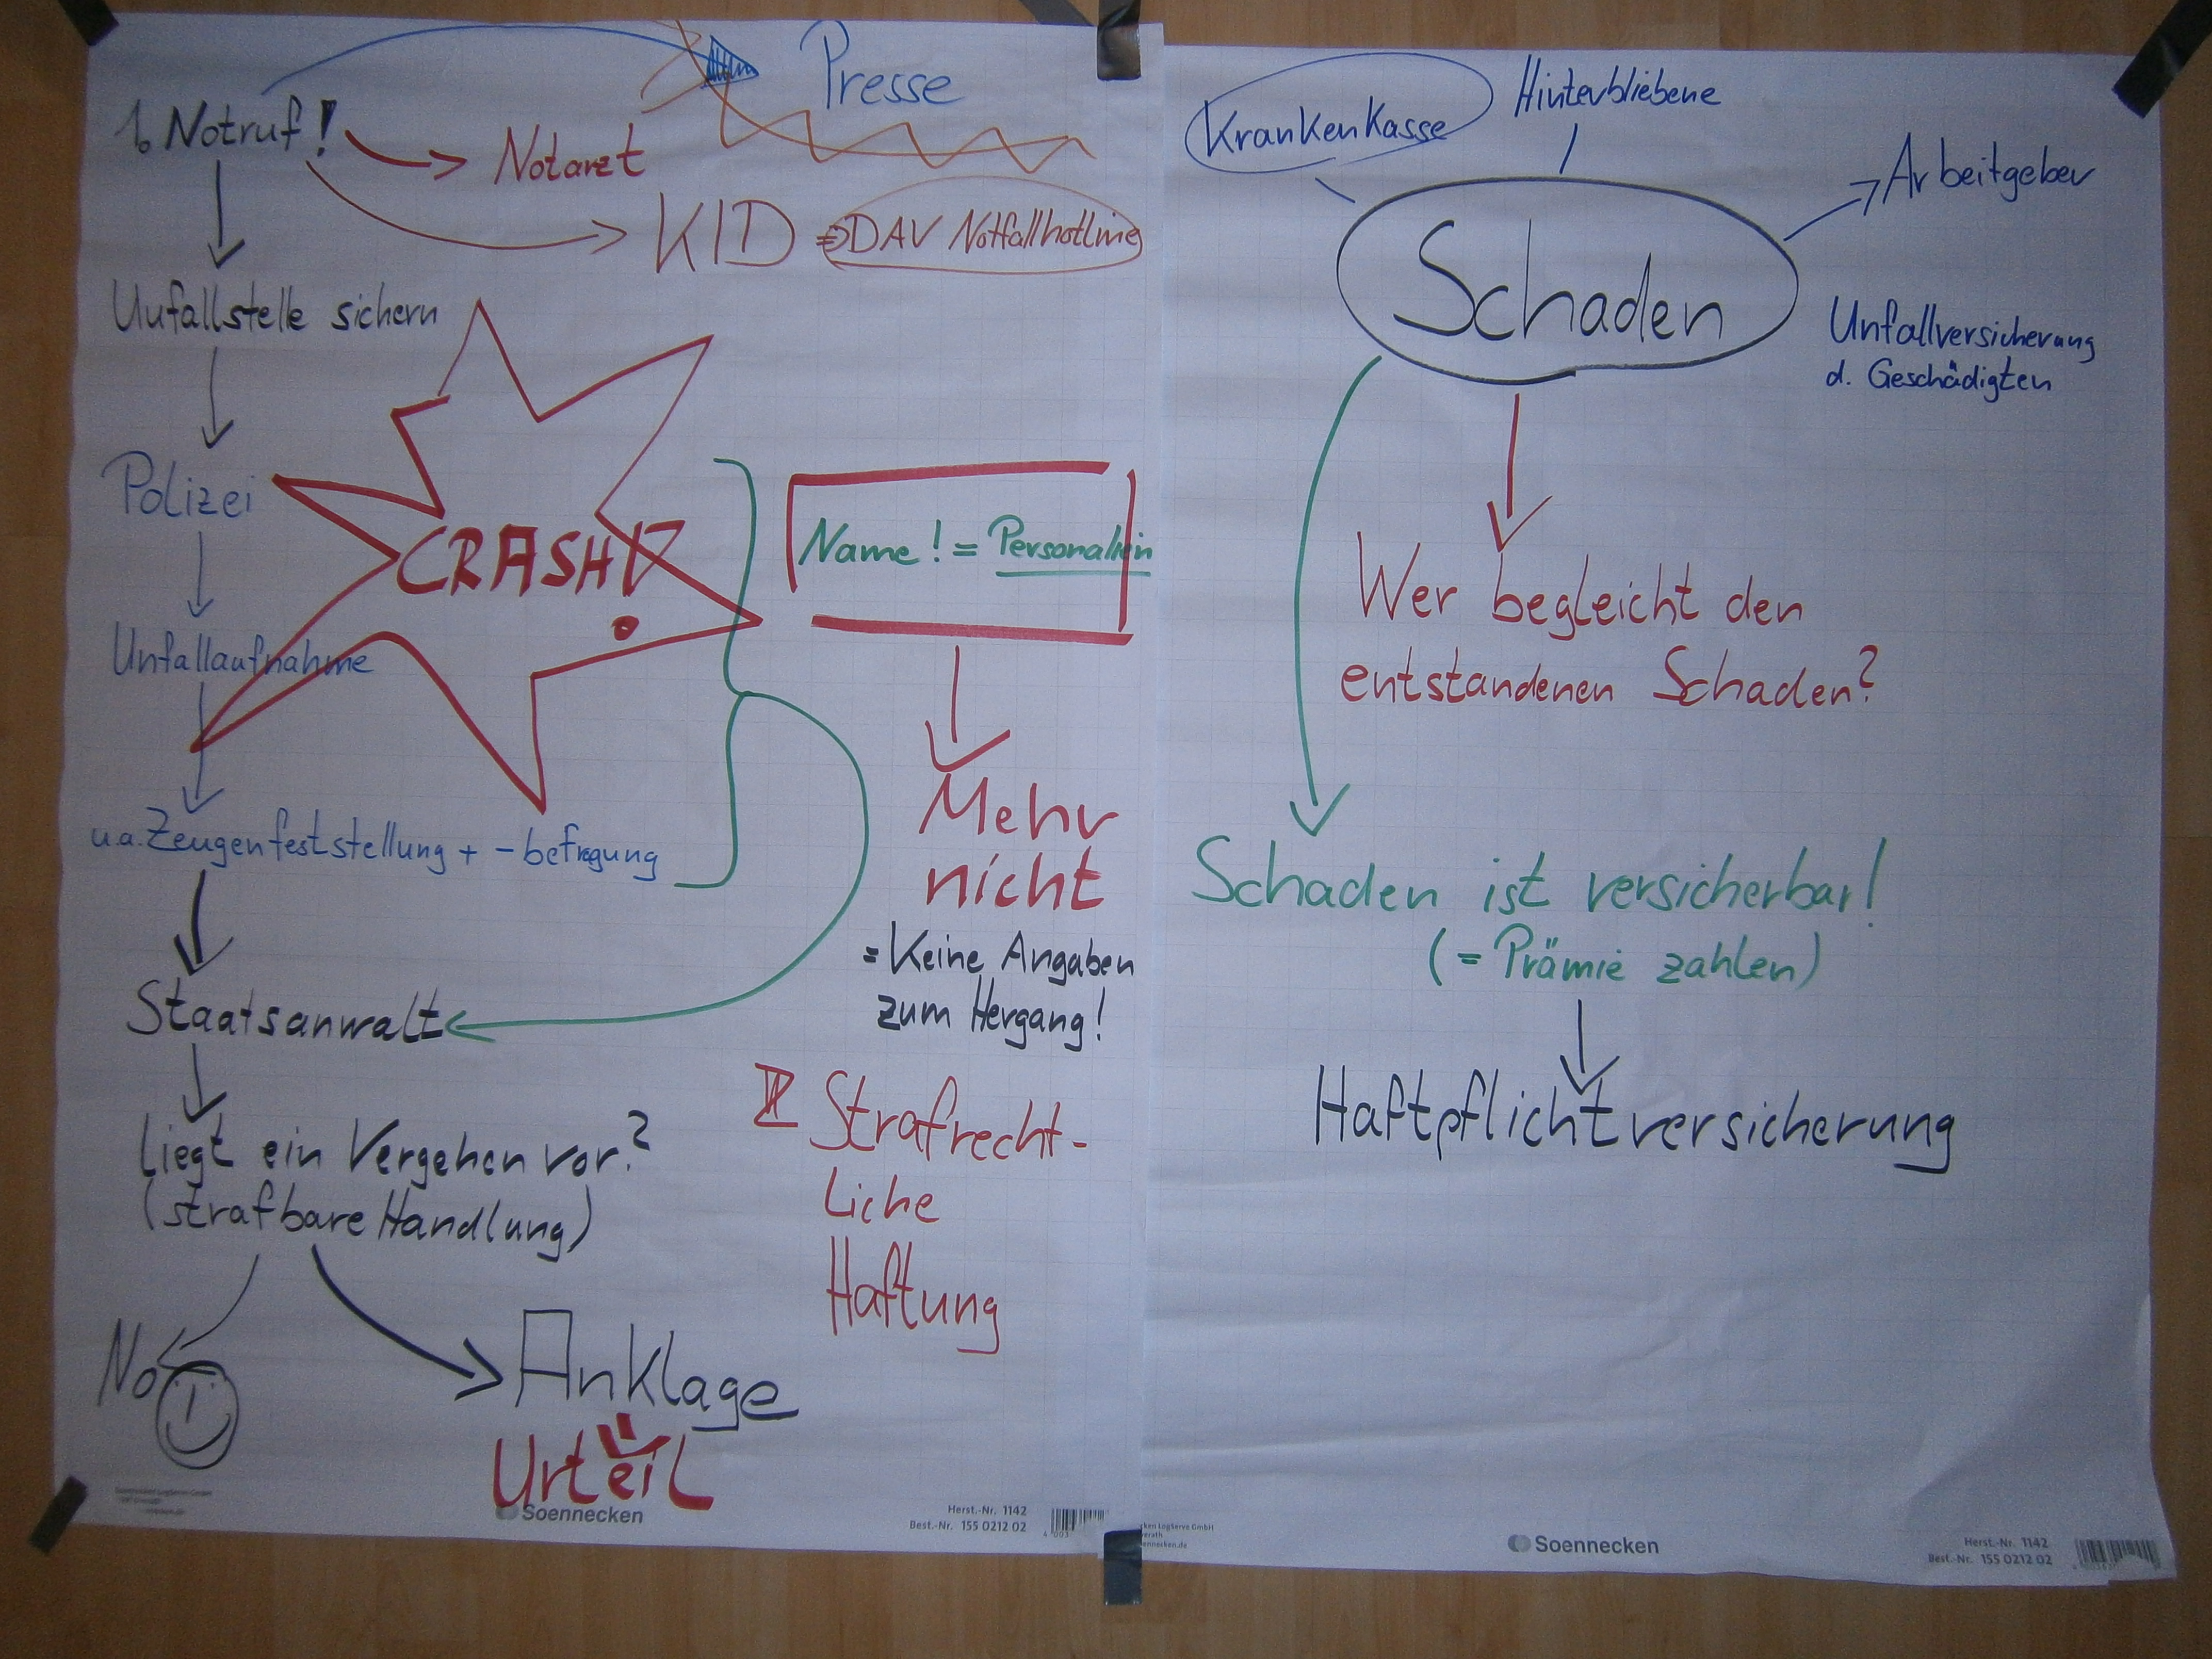 Presse
1. Notruf!
Notarzt
KID => DAV Notfallhotline
Unfallstelle sichern
Polizei
CRASH!
Name! = Personalien
Unfallaufnahme
Mehr
nicht
u.a. Zeugenfeststellung + - befragung
= Keine Angaben
zum Hergang!
Staatsanwalt
Liegt ein Vergehen vor?
(strafbare Handlung)
Strafrecht-
liche
Haftung
No
Anklage
Urteil
Soennecken
Herst.-Nr. 1142
Best.-Nr. 155 0212 02
Krankenkasse
Hinterbliebene
Arbeitgeber
Schaden
Unfallversicherung
d. Geschädigten
Wer begleicht den
entstandenen Schaden?
Schaden ist versicherbar!
(= Prämie zahlen)
Haftpflichtversicherung
Soennecken
Herst.-Nr. 1142
Best.-Nr. 155 0212 02